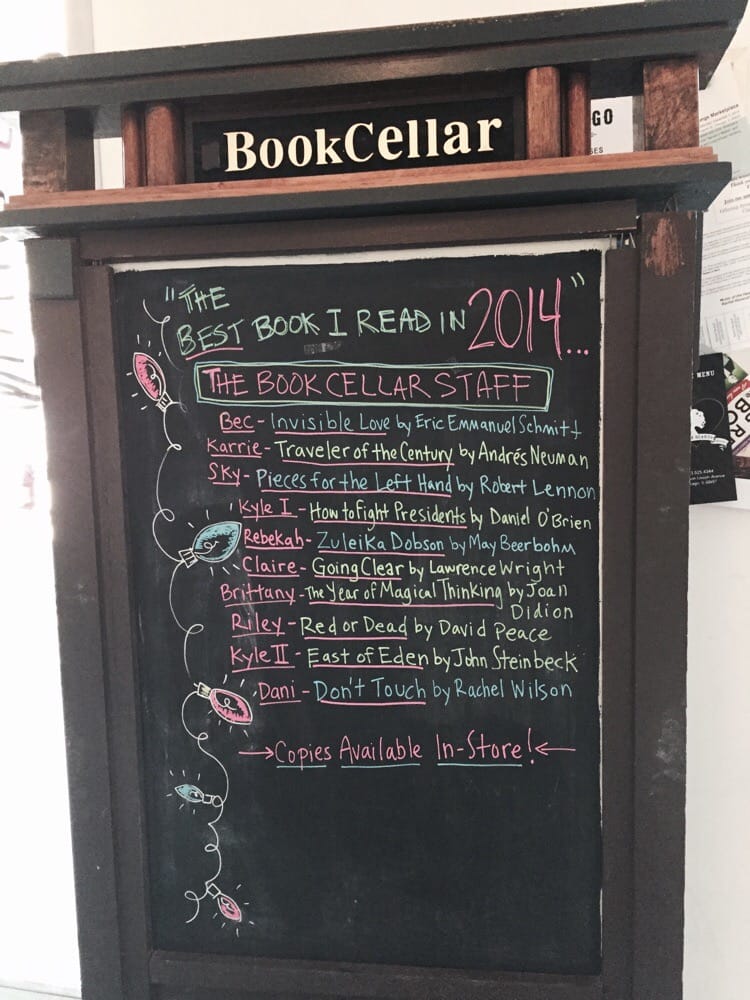 BookCellar
"THE
BEST BOOK I READ IN 2014..."
THE BOOK CELLAR STAFF
Bec - Invisible Love by Eric Emmanuel Schmitt
Karrie - Traveler of the Century by Andrés Neuman
Sky - Pieces for the Left Hand by Robert Lennon
Kyle I - How to fight Presidents by Daniel O'Brien
Rebekah - Zuleika Dobson by May Beerbohm
Claire - Going Clear by Lawrence Wright
Brittany - The Year of Magical Thinking by Joan
Didion
Riley - Red or Dead by David Peace
Kyle II - East of Eden by John Steinbeck
Dani - Don't Touch by Rachel Wilson
→Copies Available In-Store!←
GO
MENU